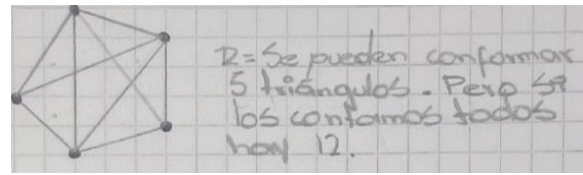 R= Se pueden conformar
5 triángulos. Pero si
los contamos todos
hay 12.